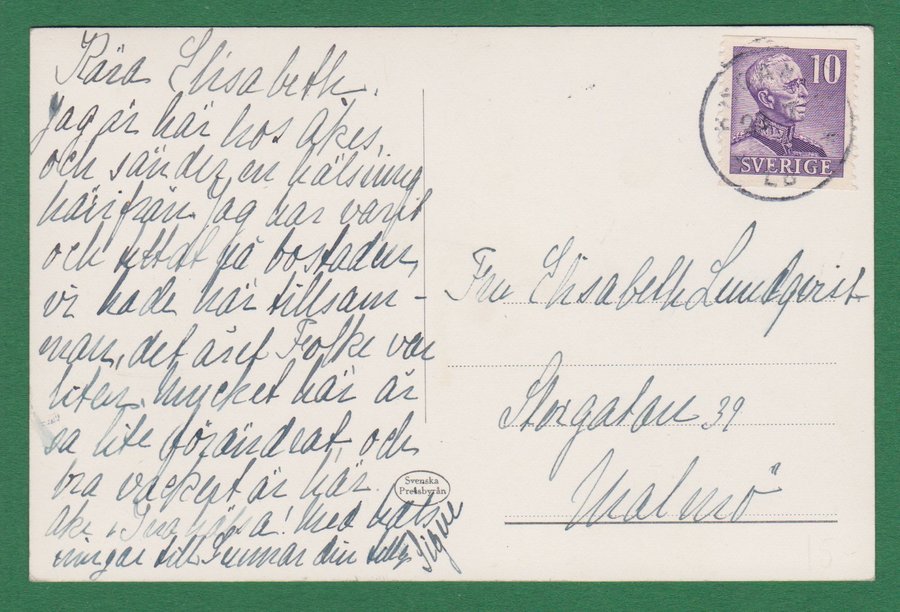 Kära Elisabeth.
Jag är här hos Åkes,
och sänder en hälsning
härifrån. Jag har varit
och tittat på bostaden,
vi hade här tillsam-
man, det året Folke var
liten. Mycket här är
sa lite förändrat, och
bra vackert är här.
Åke, Ina hälsa! Med häls-
ningar till Gunnar din
Signe
10
SVERIGE
Fru Elisabeth Lundqvist
Storgatan 39
Malmö
Svenska
Pressbyrån